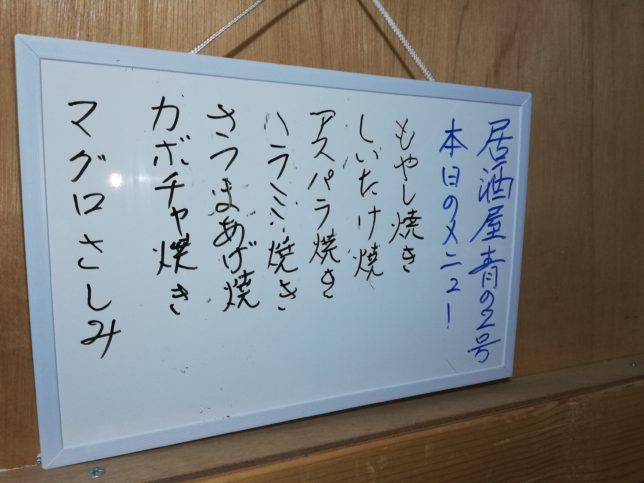 居酒屋青の2号
本日のメニュー
もやし焼き
しいたけ焼
アスパラ焼き
ハラミ焼き
さつまあげ焼
カボチャ焼き
マグロさしみ